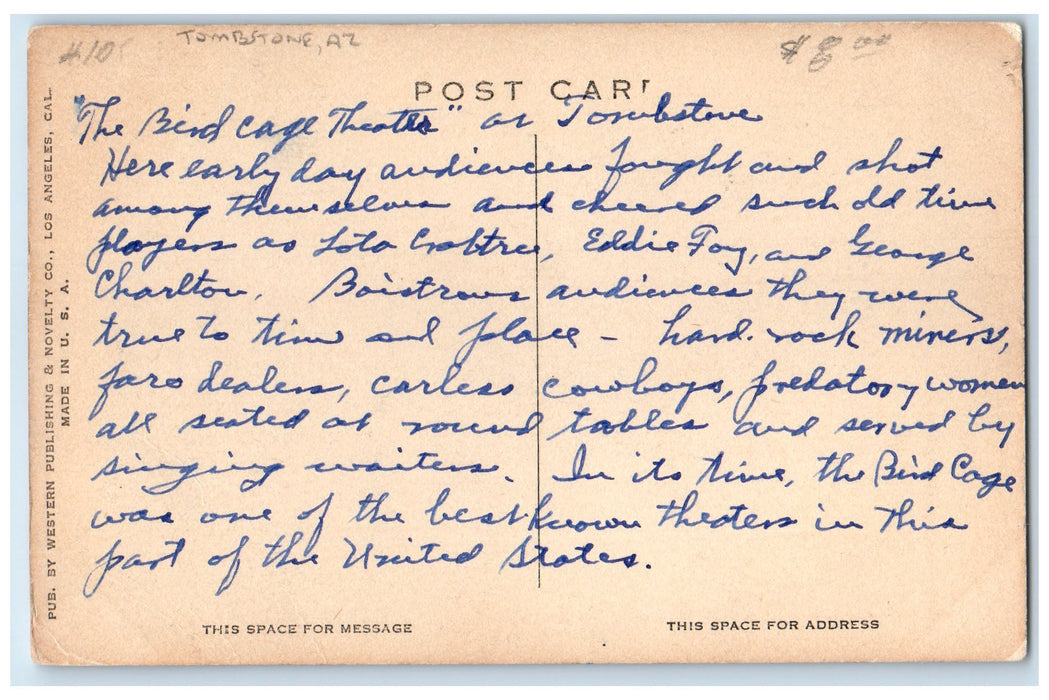 #10
TOMBSTONE, AZ
$8.00
POST CAR
"The Bird cage Theatre" at Tombstone
Here early day audiences fought and shot
among themselves and cheered such old time
players as Lota Crabtree, Eddie Foy, and George
Charlton. Boistrous audiences they were
true to time and place - hard. rock miners,
faro dealers, carless cowboys, predatory women
all seated at round tables and served by
singing waiters. In its time, the Bird Cage
was one of the best known theaters in this
part of the United States.
THIS SPACE FOR MESSAGE
THIS SPACE FOR ADDRESS
PUB. BY WESTERN PUBLISHING & NOVELTY CO., LOS ANGELES, CAL.
MADE IN U. S. A.